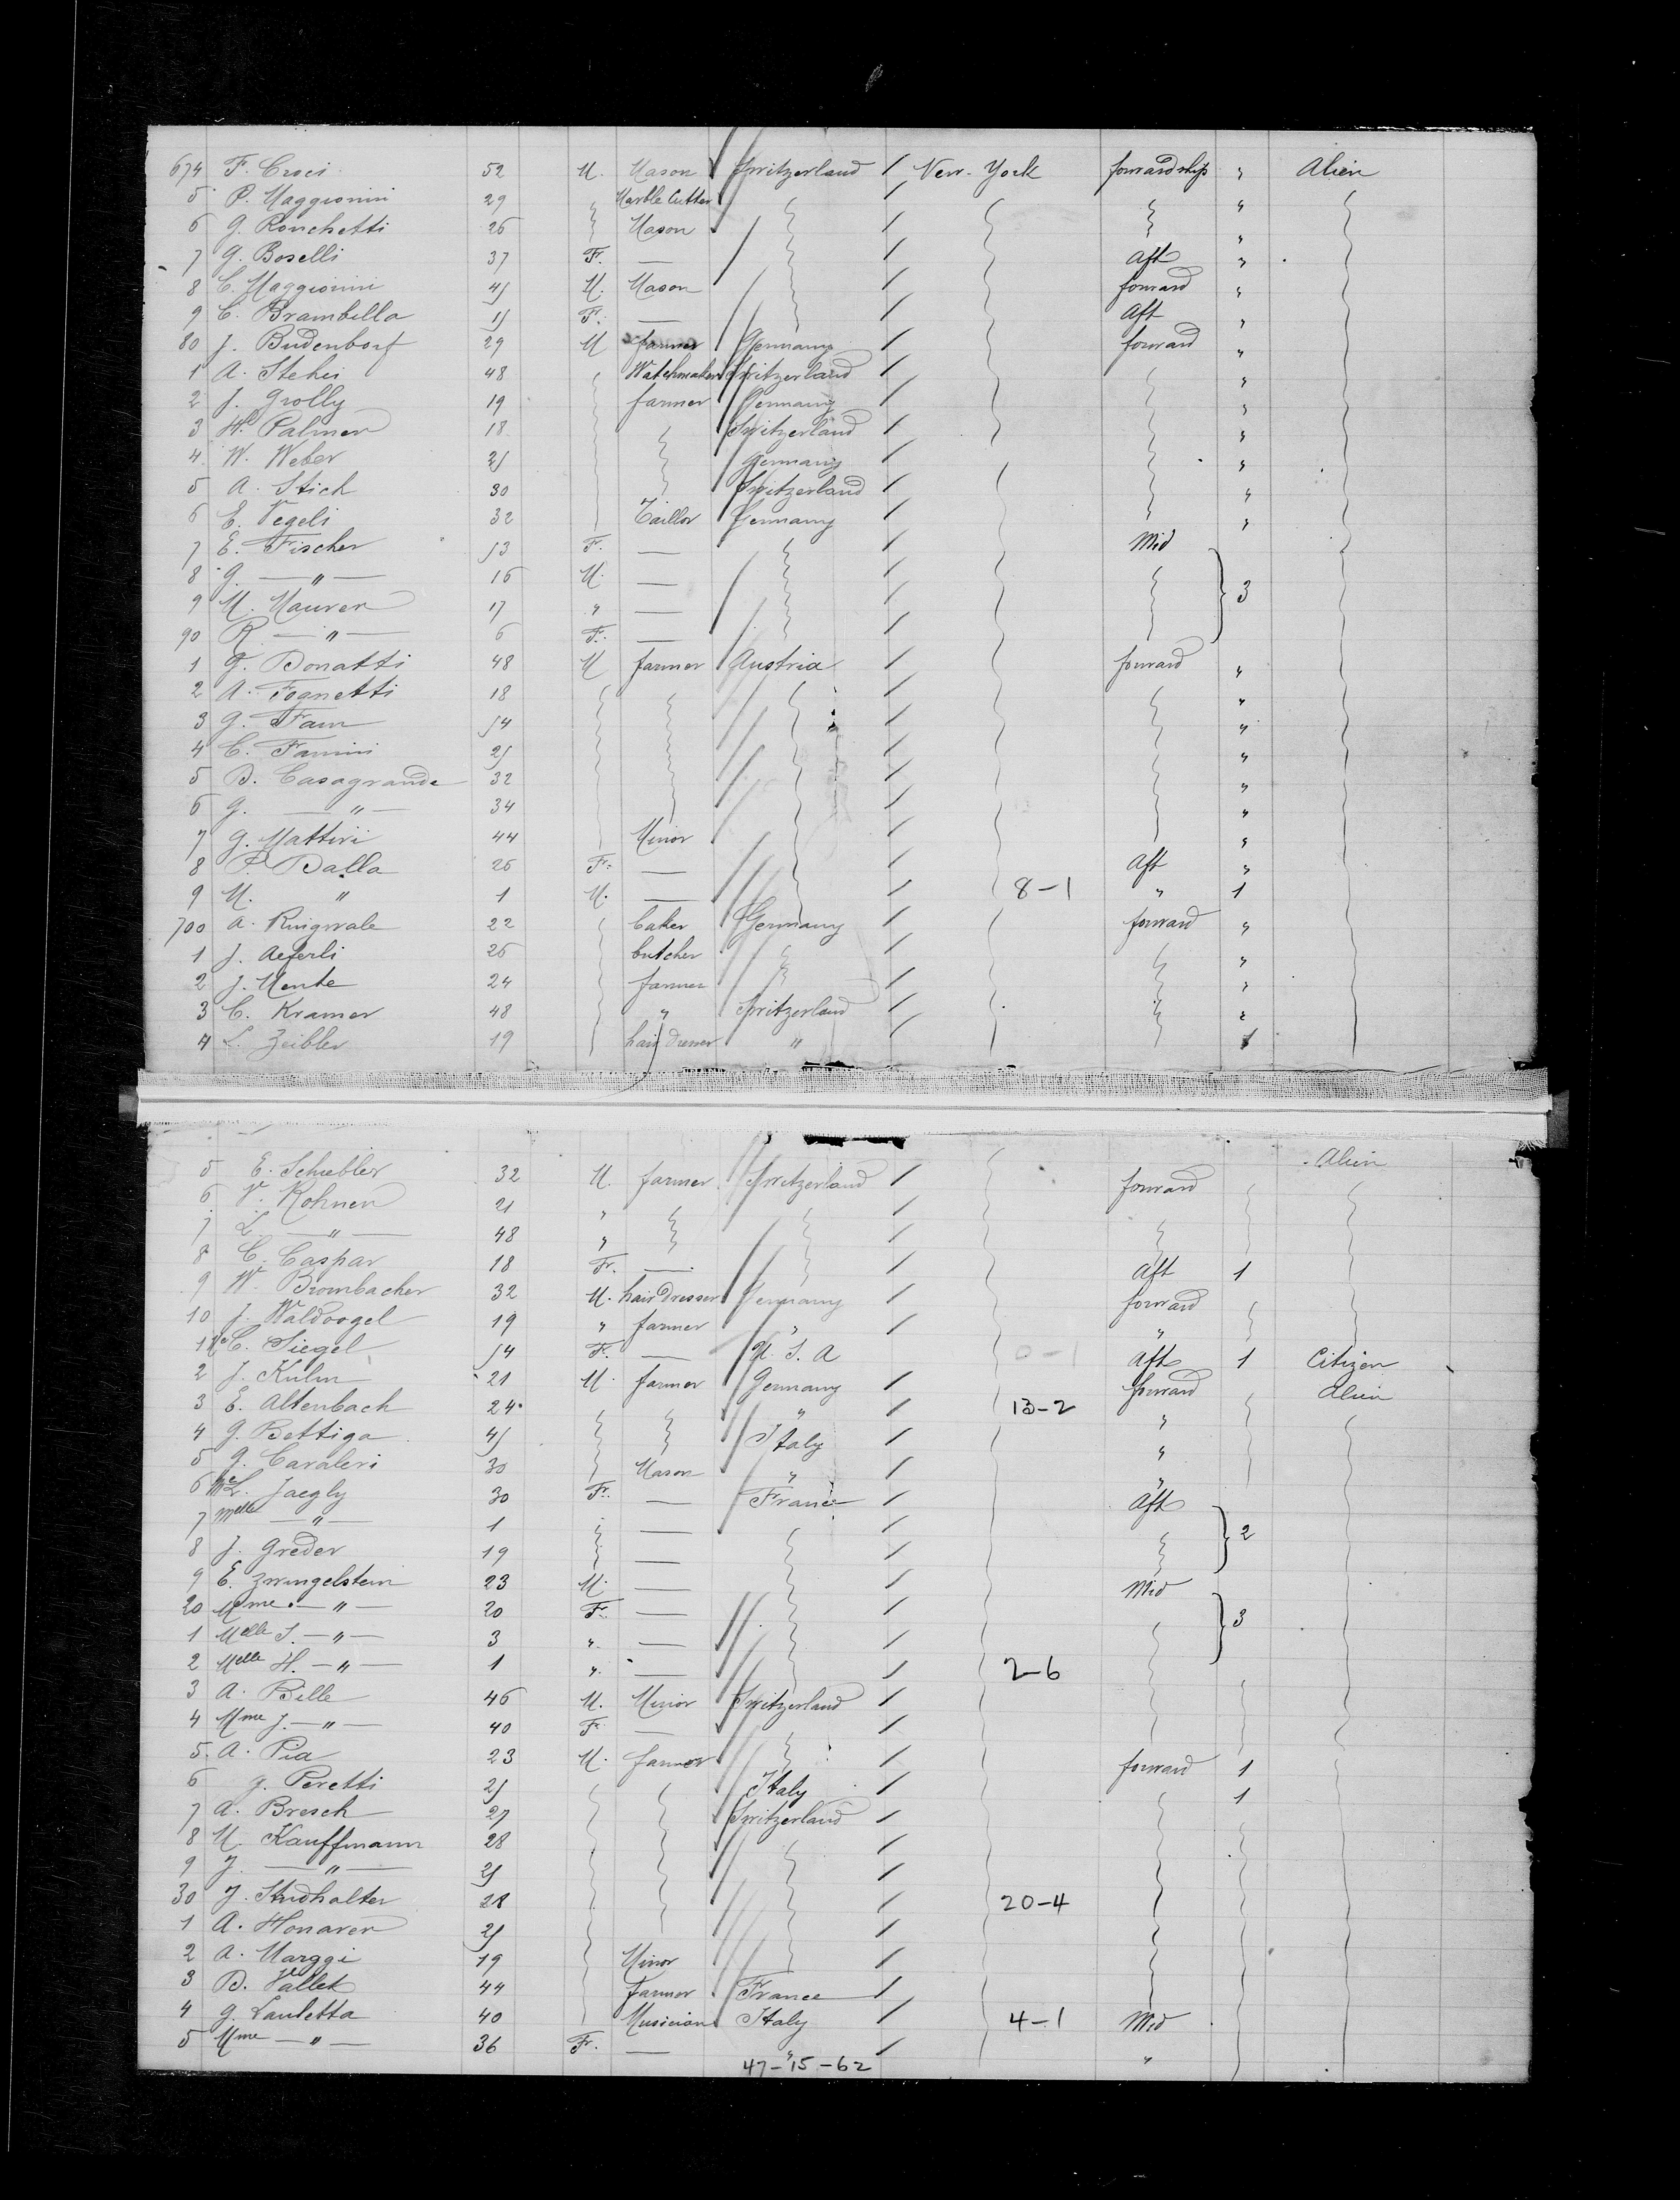 674 F. Croci 52 M. Mason Switzerland / New-York forwardship " Alien
5 P. Maggionini 29 Marble Cutter / "
6 G. Ronchetti 26 Mason / "
7 G. Boselli 37 F. — / Aft "
8 C. Maggionini 45 M. Mason / forward "
9 C. Brambilla 15 F. — / Aft "
80 J. Budenborf 29 M farmer Germany / forward "
1 A. Stehei 48 Watchmaker Switzerland / "
2 J. Grolly 19 farmer Germany / "
3 H. Palmer 18 Switzerland / "
4 W. Weber 25 Germany / "
5 A. Stich 30 Switzerland / "
6 E. Vegeli 32 Taillor Germany / "
7 E. Fischer 53 F. — / Mid
8 G. — " — 16 M. — / 3
9 M. Maurer 17 " — /
90 R — " — 6 F. — /
1 G. Donatti 48 M farmer Austria / forward "
2 A. Fognetti 18 / "
3 G. Fam 54 / "
4 C. Famini 25 / "
5 D. Casagrande 32 / "
6 G. — " — 34 / "
7 G. Mattivi 44 Minor / "
8 P. Dalla 26 F. — / Aft "
9 M. " 1 M. — / 8-1 " 1
700 A. Ringwale 22 baker Germany / forward "
1 J. Aeferli 26 butcher / "
2 J. Mente 24 farmer / "
3 C. Kramer 48 " Switzerland / "
4 L. Zeibler 19 hair dresser " / 1
5 E. Schubler 32 M. farmer Switzerland / forward Alien
6 V. Rohner 21 " /
7 L. — " — 48 " /
8 C. Caspar 18 F. — / Aft 1
9 W. Brombacher 32 M. hair dresser Germany / forward
10 J. Waldvogel 19 " farmer " / "
11 C. Siegel 54 F. — U. S. A 0-1 Aft 1 Citizen
2 J. Kulm 21 M. farmer Germany / forward Alien
3 E. Altenbach 24 " / 13-2 "
4 G. Bettiga 45 Italy / "
5 G. Cavaleri 30 Mason " / "
6 Me L. Jaegly 30 F. — France / Aft
7 Melle — " — 1 — / 2
8 J. Greder 19 — /
9 E. Zwingelstein 23 M. — / Mid
20 Mme — " — 20 F. — / 3
1 Melle S. — " — 3 " — /
2 Melle H. — " — 1 " — / 2-6
3 A. Bille 46 M. Minor Switzerland /
4 Mme J. — " — 40 F. — /
5 A. Pia 23 M. farmer / forward 1
6 G. Peretti 25 Italy / 1
7 A. Bresch 27 Switzerland /
8 M. Kauffmann 28 /
9 J. — " — 25 /
30 J. Studhalter 28 / 20-4
1 A. Honarer 25 /
2 A. Marggi 19 Minor /
3 D. Vallet 44 farmer France /
4 G. Lauletta 40 Musician Italy / 4-1 Mid
5 Mme — " — 36 F. — " / "
47-15-62